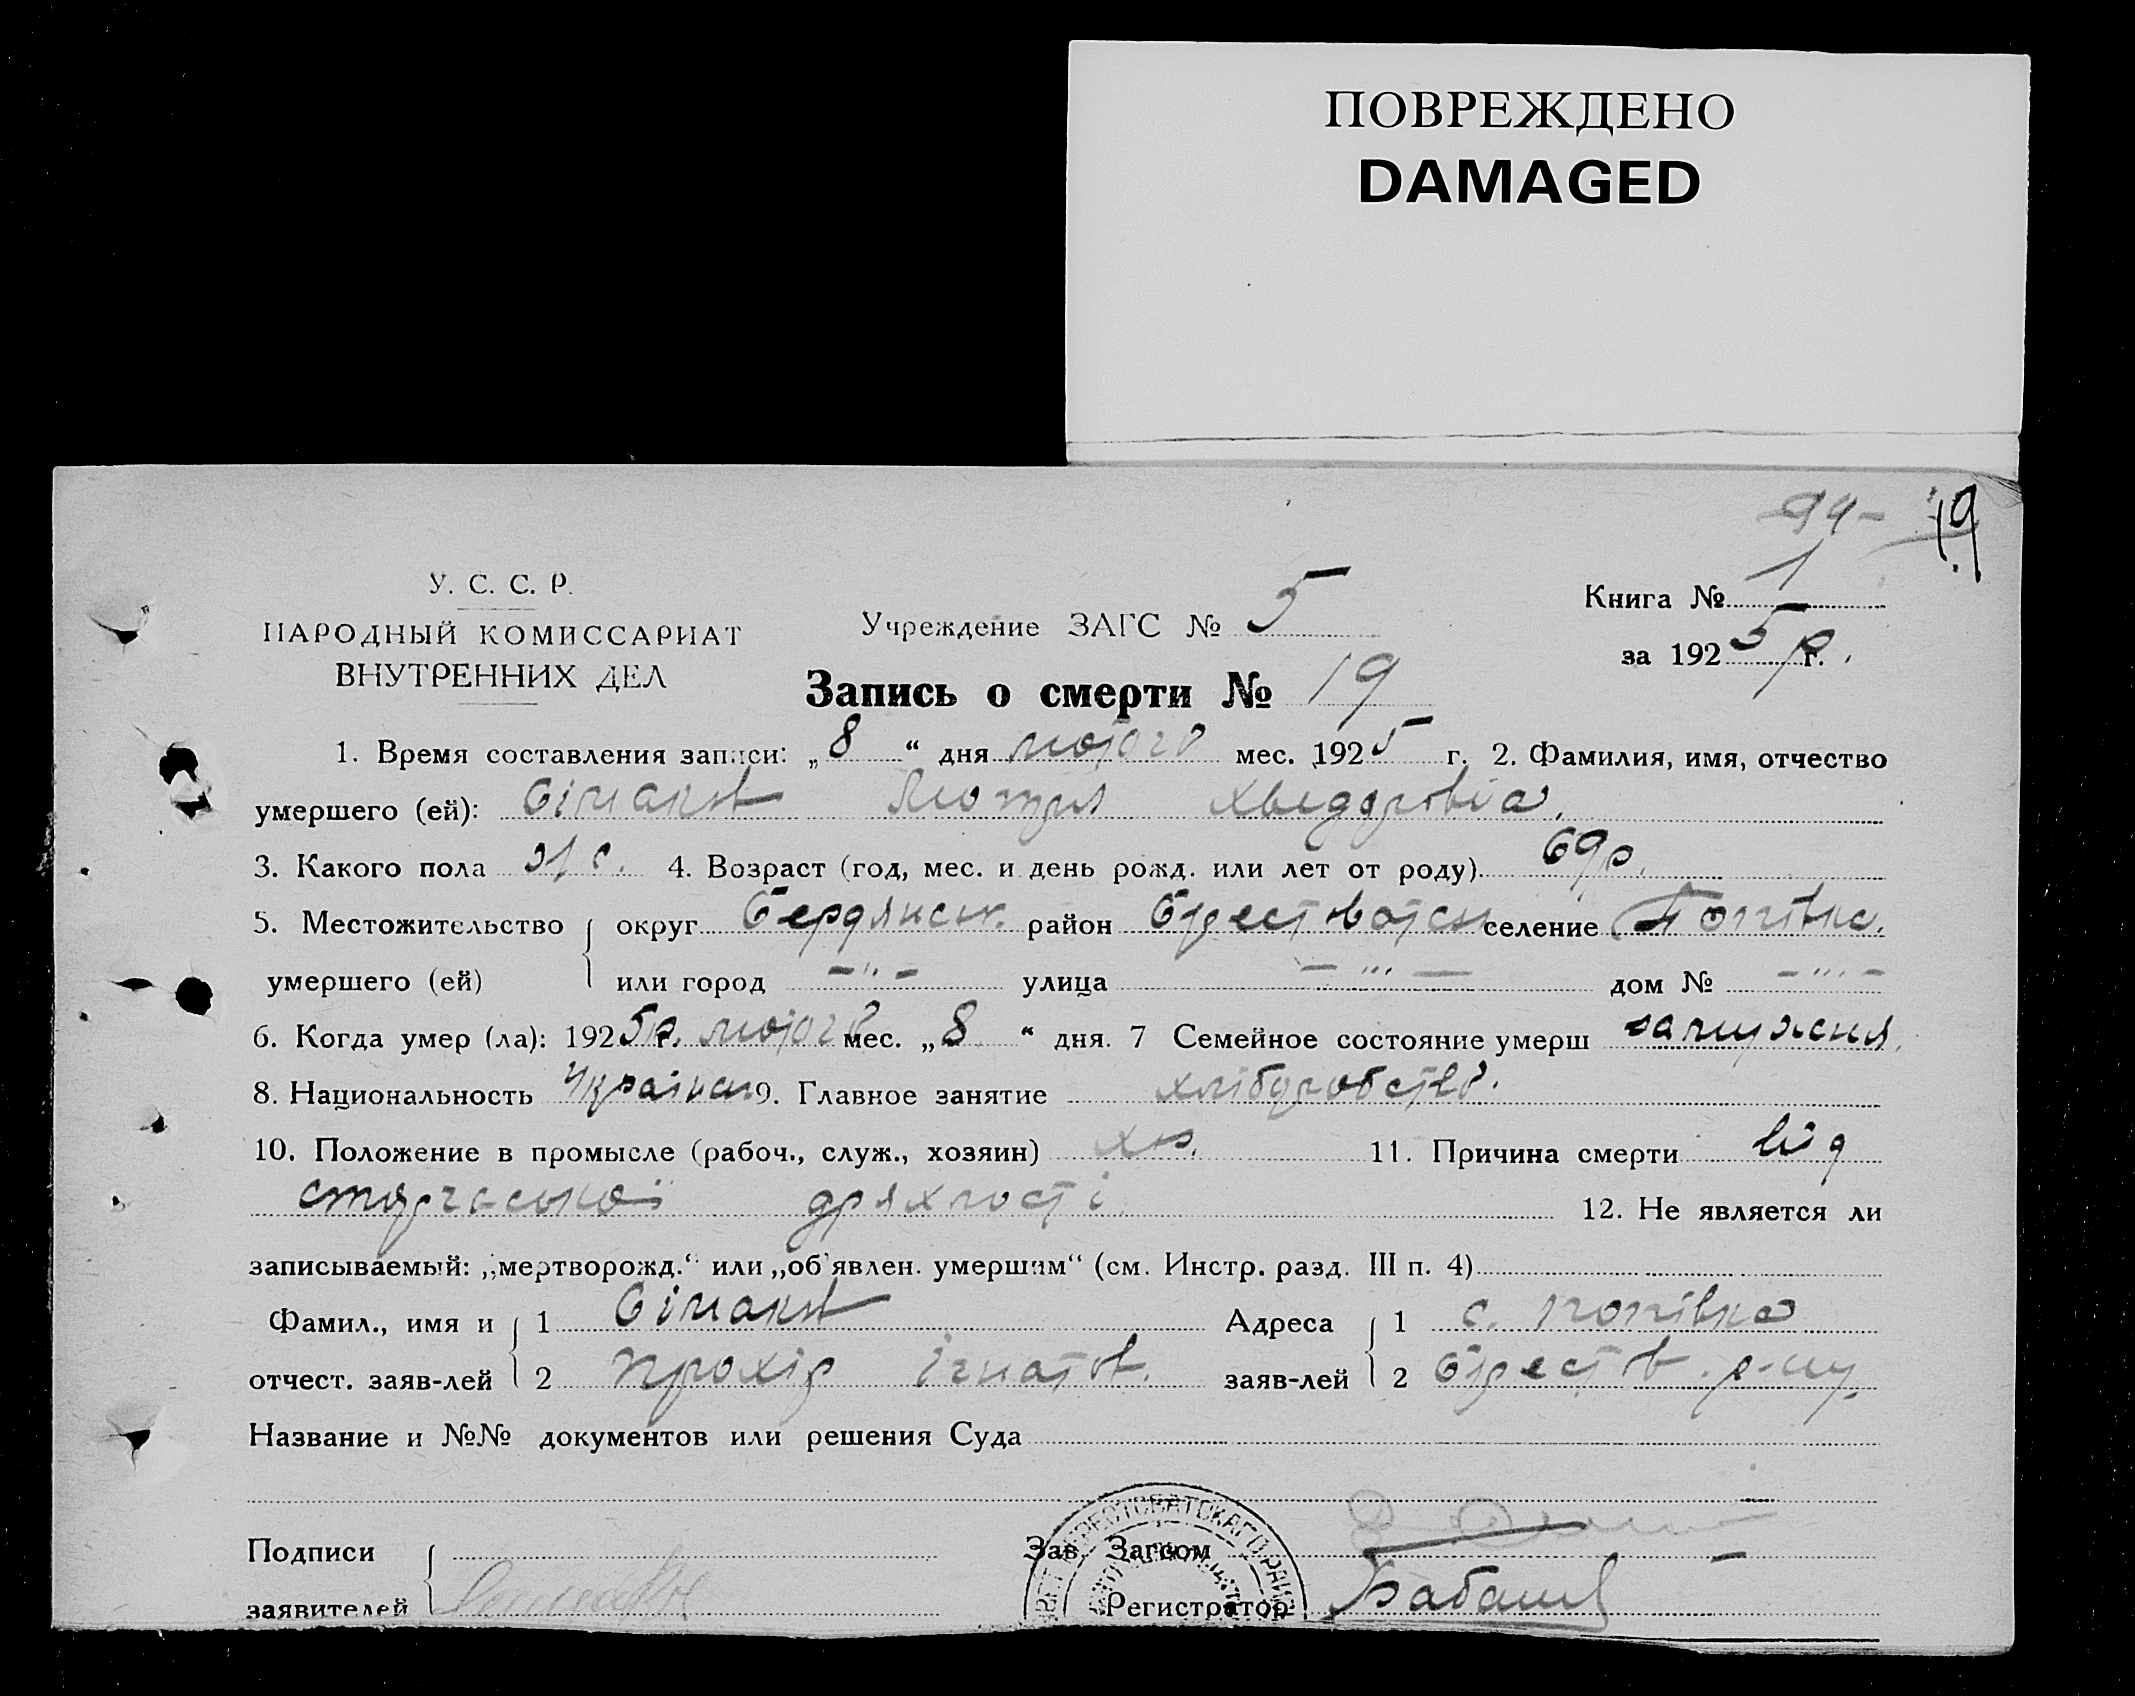 ПОВРЕЖДЕНО
DAMAGED
94- 19
У. С. С. Р.
НАРОДНЫЙ КОМИССАРИАТ
ВНУТРЕННИХ ДЕЛ
Учреждение ЗАГС № 5
Книга № 1
за 1925 р г.
Запись о смерти № 19
1. Время составления записи: „8“ дня лютого мес. 1925 г. 2. Фамилия, имя, отчество
умершего (ей): Сімакяв Хведоровіа.
3. Какого пола ж. 4. Возраст (год, мес. и день рожд. или лет от роду) 69 р.
5. Местожительство округ Бердянськ. район Берестоватськ селение Попівка.
умершего (ей) или город -"- улица -"- дом № -"-
6. Когда умер (ла): 1925 р. г. лютого мес. „8“ дня. 7 Семейное состояние умерш замужня.
8. Национальность Українк 9. Главное занятие хліборобство.
10. Положение в промысле (рабоч., служ., хозяин) хоз. 11. Причина смерти від
старчеської дряхлості 12. Не является ли
записываемый: „мертворожд.“ или „об'явлен. умершим“ (см. Инстр. разд. III п. 4)
Фамил., имя и 1 Сімаков Адреса 1 с. Попівка
отчест. заяв-лей 2 Прохір Ігнатов. заяв-лей 2 Берестов. р-ну
Название и №№ документов или решения Суда
Подписи Зав. Загсом
заявителей Регистратор